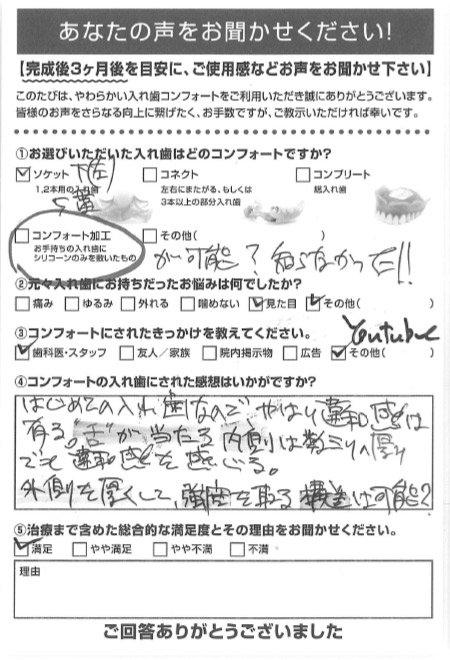 あなたの声をお聞かせください!
【完成後3ヶ月後を目安に、ご使用感などお声をお聞かせ下さい】
このたびは、やわらかい入れ歯コンフォートをご利用いただき誠にありがとうございます。
皆様のお声をさらなる向上に繋げたく、お手数ですが、ご教示いただければ幸いです。
①お選びいただいた入れ歯はどのコンフォートですか?
ソケット 下(左)
1,2本用の入れ歯
5番
コネクト
左右にまたがる、もしくは
3本以上の部分入れ歯
コンプリート
総入れ歯
コンフォート加工
お手持ちの入れ歯に
シリコーンのみを敷いたもの
その他( )
が可能?知らなかった!!
②元々入れ歯にお持ちだったお悩みは何でしたか?
痛み ゆるみ 外れる 噛めない 見た目 その他( )
③コンフォートにされたきっかけを教えてください。
Youtube
歯科医・スタッフ 友人/家族 院内掲示物 広告 その他( )
④コンフォートの入れ歯にされた感想はいかがですか?
はじめての入れ歯なので、やはり違和感は
有る。"舌"が当たる内側は数ミリの厚り
でも違和感を感じる。
外側を厚くして、強度を取る構造は可能?
⑤治療まで含めた総合的な満足度とその理由をお聞かせください。
満足 やや満足 やや不満 不満
理由
ご回答ありがとうございました